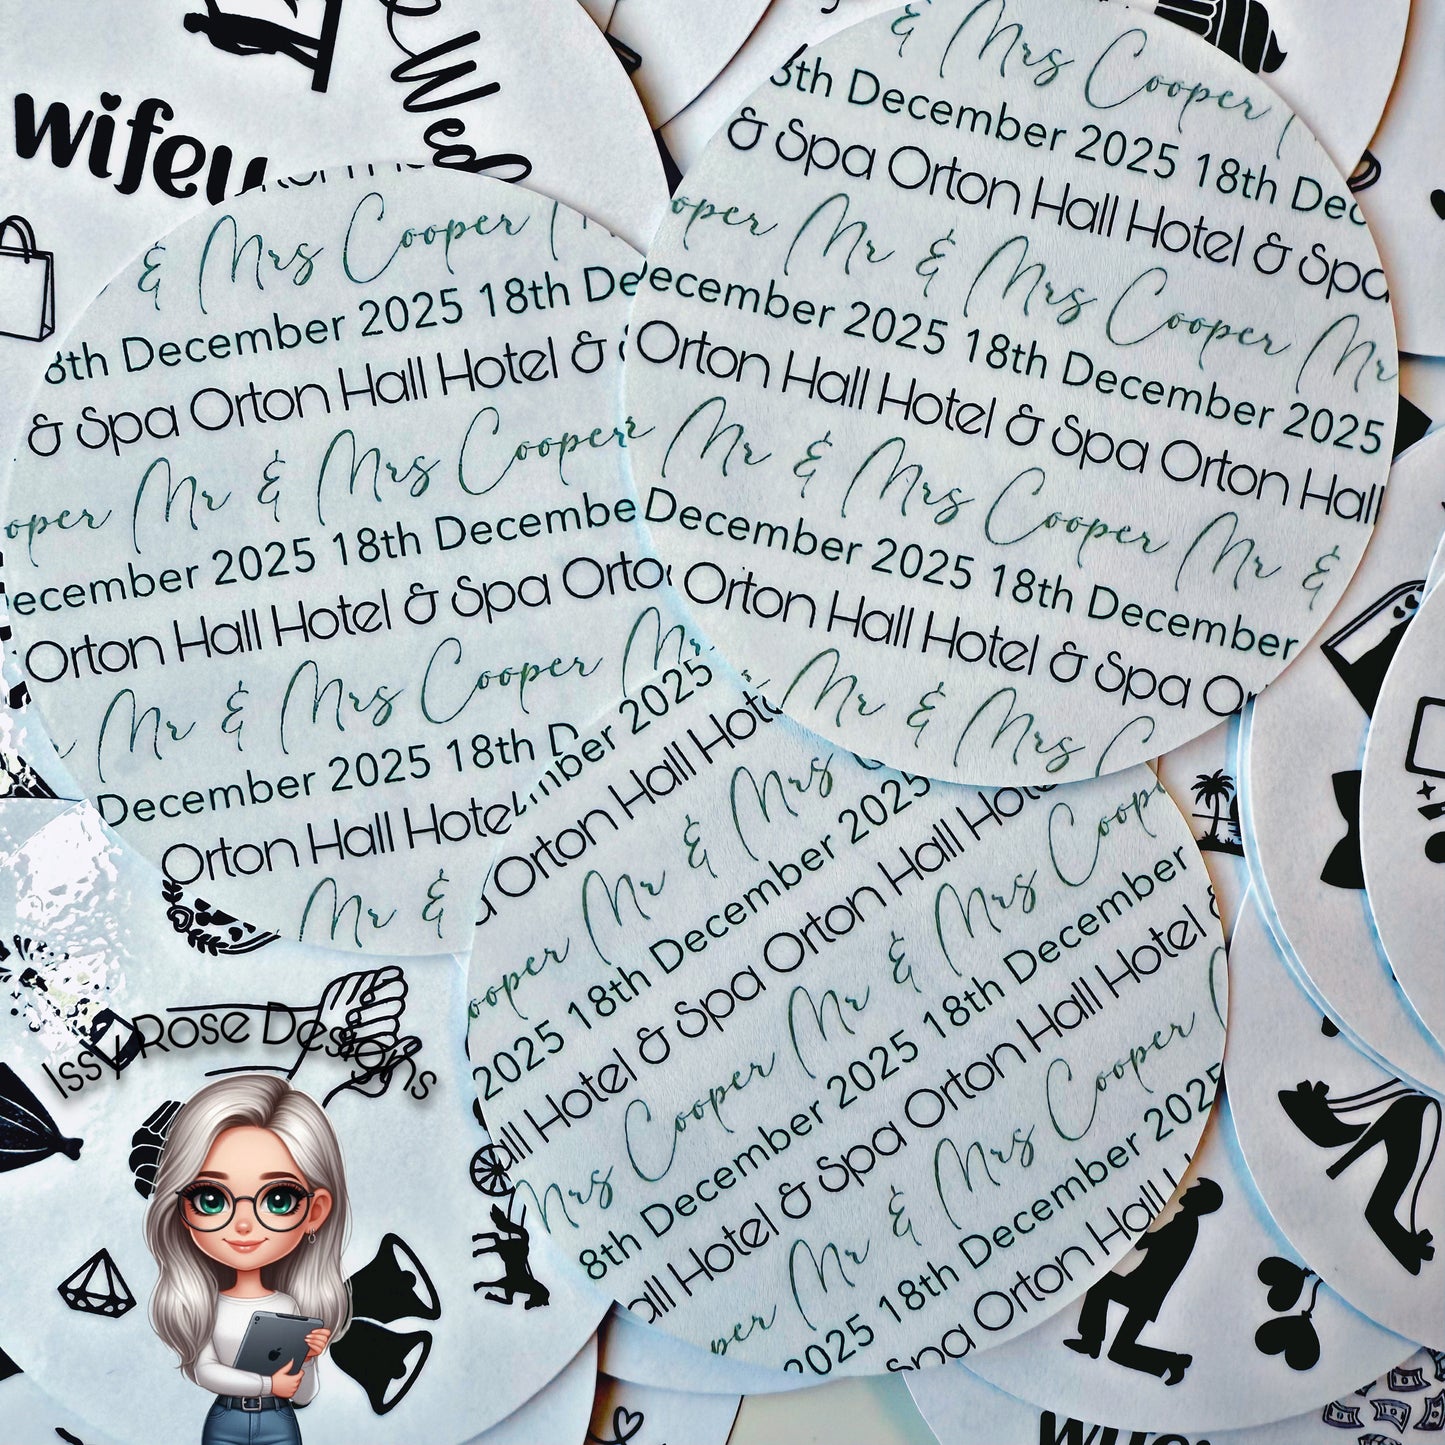 wifey
& Mrs Cooper
8th December 2025 18th De
& Spa Orton Hall Hotel &
oper Mr & Mrs Cooper
ecember 2025 18th Decembe
Orton Hall Hotel & Spa Orto
Mr & Mrs Cooper Mr
December 2025 18th D
Orton Hall Hote
Mr &
& Mrs Cooper
8th December 2025 18th Dec
& Spa Orton Hall Hotel & Spa
oper Mr & Mrs Cooper Mr
ecember 2025 18th December 2025
Orton Hall Hotel & Spa Orton Hall
Mr & Mrs Cooper Mr &
December 2025 18th December
Orton Hall Hotel & Spa Or
Mr & Mrs C
mber 2025
a Orton Hall Hote
ooper Mr & Mrs
2025 18th December 2025
all Hotel & Spa Orton Hall Hote
Mrs Cooper Mr & Mrs Coope
8th December 2025 18th December
all Hotel & Spa Orton Hall Hotel &
per Mr & Mrs Cooper
2025 18th December 2025
Spa Orton Hall H
Issy Rose Designs